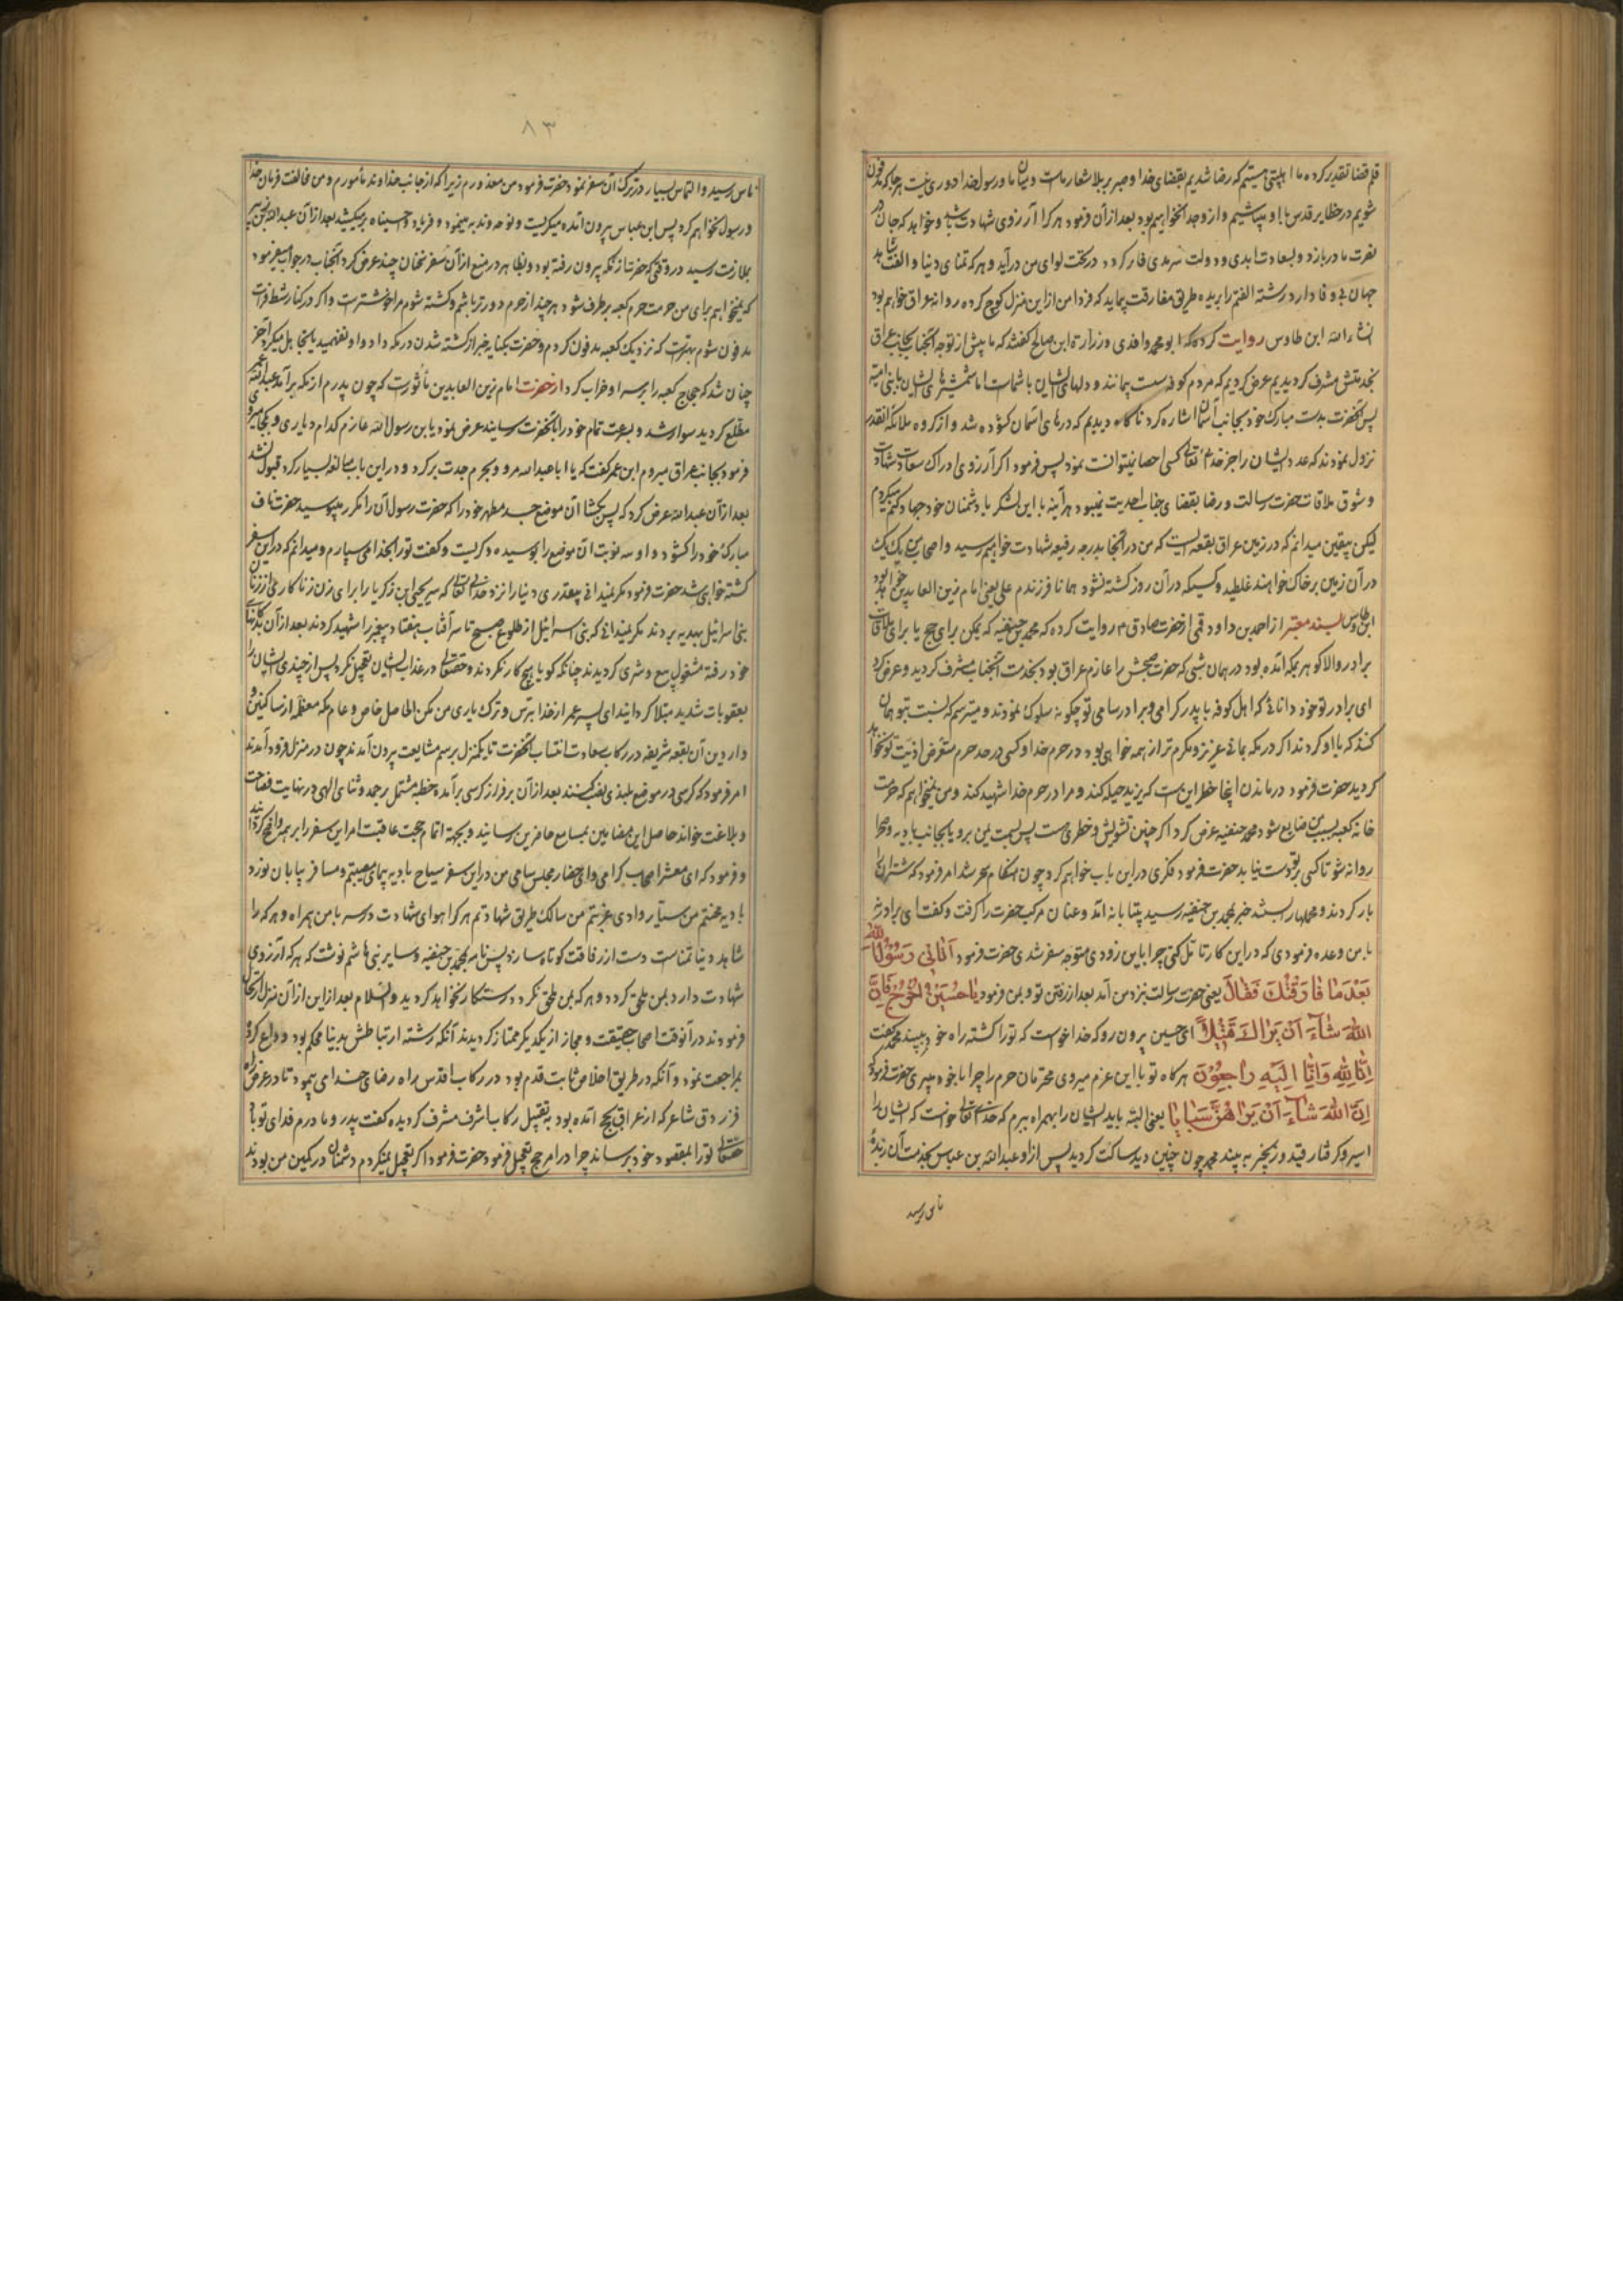 قلم قضا تقدیر کرده ما اهلبیتی هستیم که رضا شدیم بقضای خدا و صبر بر بلا شعار ماست و میان ما و رسول خدا دوری نیست هر جا که مدفون
شویم در حظایر قدس با او میباشیم و از وی جدا نخواهیم بود بعد از آن فرمود هر کرا آرزوی شهادت باشد و خواهد که جان در
نصرت ما دربازد و بسعادت ابدی و دولت سرمدی فایز گردد در تحت لوای من درآید و هر که تمنای دنیا و الفت شاهد
جهان بی وفا دارد رشته الفتم را بریده طریق مفارقت پیماید که فردا من از این منزل کوچ کرده روانه عراق خواهم بود
انشاءالله ابن طاوس روایت کرده که ابو محمد واقدی و زرارة ابن صالح گفتند که ما پیش از توجه آنجناب بجانب عراق
بخدمتش مشرف گردیدیم عرض کردیم که مردم کوفه سست پیمانند و دلهای ایشان با شماست اما شمشیرهای ایشان با بنی امیه
پس آنحضرت بدست مبارک خود بجانب آسمان اشاره کرد ناگاه دیدیم که درهای آسمان گشوده شد و از گروه ملائکه آنقدر
نزول نمودند که عدد ایشان را جز خدای تعالی کسی احصا نمیتوانست نمود پس فرمود اگر آرزوی ادراک سعادت شهادت
و شوق ملاقات حضرت رسالت و رضا بقضای جناب احدیت نمیبود هر آینه با این لشکر با دشمنان خود جهاد میکردم
لیکن بیقین میدانم که در زمین عراق بقعه ایست که من در آنجا بدرجه رفیعه شهادت خواهم رسید و اصحاب من یک یک
در آن زمین بر خاک خواهند غلطید و کسیکه در آن روز کشته نشود همانا فرزندم علی یعنی امام زین العابدین خواهد بود
ابن طاوس بسند معتبر از احمد بن داود قمی از حضرت صادق م روایت کرده که محمد بن حنفیه که بمکه برای حج یا برای ملاقات
برادر والا گوهر بمکه آمده بود در همان شبی که حضرت صبحش را عازم عراق بود بخدمت آنجناب مشرف گردید و عرض کرد
ای برادر تو خود دانائی که اهل کوفه با پدر گرامی و برادر سامی تو چگونه سلوک نمودند و میترسم که نسبت بتو همان
کنند که با او کردند اگر در مکه بمانی عزیز و مکرم تر از همه خواهی بود در حرم خدا و کسی در حد حرم متعرض اذیت تو نخواهد
گردید حضرت فرمود در ماندن اینجا خطر این است که یزید حیله کند و مرا در حرم خدا شهید کند و من نمیخواهم که حرمت
خانه کعبه بسبب من ضایع شود محمد حنفیه عرض کرد اگر چنین تشویش و خطری هست پس بسمت یمن برو یا بجانب بادیه و صحرا
روانه شو تا کسی بر تو دست نیابد حضرت فرمود فکری در این باب خواهم کرد چون هنگام سحر شد امر فرمود که شتران را
بار کردند و محملها را بستند خبر بمحمد بن حنفیه رسید بیتابانه آمد و عنان مرکب حضرت را گرفت و گفت ای برادر نه
با من وعده فرمودی که در این کار تامل کنی چرا باین زودی متوجه سفر شدی حضرت فرمود اَتانی رَسُولُ اللهِ
بَعْدَ مَا فَارَقْتُكَ فَقَالَ یعنی حضرت رسالت نزد من آمد بعد از رفتن تو و بمن فرمود یا حُسَیْنُ اخْرُجْ فَاِنَّ
اللهَ شَآءَ اَنْ یَرَاكَ قَتِیْلاً ای حسین بیرون رو که خدا خواست که تو را کشته راه خود ببیند محمد گفت
اِنَّا لِلّٰهِ وَاِنَّا اِلَیْهِ رَاجِعُوْنَ هر گاه تو با این عزم میروی محترمان حرم را چرا با خود میبری حضرت فرمود که
اِنَّ اللهَ شَآءَ اَنْ یَرَاهُنَّ سَبَایَا یعنی البته باید ایشان را بهمراه ببرم که خدای تعالی خواست که ایشان را
اسیر و گرفتار قید و زنجیر به بیند محمد چون چنین دید ساکت گردید پس از او عبدالله بن عباس بخدمت آن زبده
ناس رسید
۸۳
ناس رسید و التماس بسیار در ترک آن سفر نمود حضرت فرمود من معذورم زیرا که از جانب خداوند مأمورم و من مخالفت فرمان خدا
و رسول نخواهم کرد پس ابن عباس بیرون آمده میگریست و نوحه و ندبه مینمود و فریاد وا حسیناه بر میکشید بعد از آن عبدالله بن زبیر
بملازمت رسید در وقتی که حضرت از مکه بیرون رفته بود و بظاهر در منع از آن سفر سخنان چند عرض کرد آنجناب در جواب میفرمود
که نمیخواهم برای من حرمت حرم کعبه بر طرف شود هر چند از حرم دورتر باشم و کشته شوم مرا خوشتر است و اگر در کنار شط فرات
مدفون شوم بهتر است که نزدیک کعبه مدفون گردم و حضرت بکنایه خبر از کشته شدن در مکه داد و او نفهمید یا تجاهل میکرد آخر
چنان شد که حجاج کعبه را بر سر او خراب کرد از حضرت امام زین العابدین مأثورست که چون پدرم از مکه برآمد عبدالله عمر
مطلع گردید سوار شد و بسرعت تمام خود را بآنحضرت رسانید عرض نمود یا بن رسول الله عازم کدام دیاری و بکجا میروی
فرمود بجانب عراق میروم ابن عمر گفت که یا ابا عبدالله مرو و بحرم جدت برگرد و در این باب مبالغه بسیار کرد قبول نشد
بعد از آن عبدالله عرض کرد که پس بگشا آن موضع جسد مطهر خود را که حضرت رسول آن را مکرر میبوسید حضرت ناف
مبارک خود را گشود و او سه نوبت آن موضع را بوسیده و گریست و گفت تو را بخدا می سپارم و میدانم که در این سفر
کشته خواهی شد حضرت فرمود مگر نمیدانی بیقدری دنیا را نزد خدای تعالی که سر یحیی بن زکریا را برای زن زناکاری از زنان
بنی اسرائیل بهدیه بردند مگر نمیدانی که بنی اسرائیل از طلوع صبح تا سر آفتاب هفتاد پیغمبر را شهید کردند بعد از آن بدکانهای
خود رفته مشغول بیع و شری گردیدند چنانکه گویا هیچ کار نکردند و حقتعالی در عذاب ایشان تعجیل نکرد پس از چندی ایشان را
بعقوبات شدید مبتلا گردانید ای پسر عمر از خدا بترس و ترک یاری من مکن الحاصل خاص و عام مکه معظمه از ساکنین و
واردین آن بقعه شریفه در رکاب سعادت انتساب آنحضرت تا یکمنزل برسم مشایعت بیرون آمدند چون در منزل فرود آمدند
امر فرمود که کرسی در موضع بلندی نصب کنند بعد از آن بر فراز کرسی برآمد خطبه مشتمل بر حمد و ثنای الهی در نهایت فصاحت
و بلاغت خواند حاصل این مضامین بمسامع حاضرین رسانید و بجهة اتمام حجت عاقبت امر این سفر را بر همه واضح گردانید
و فرمود که ای معشر اصحاب گرامی و ای حضار مجلس سامی من در این سفر سیاح بادیه پیمای مصیبتم و مسافر بیابان نورد
بادیه محنتم من سیار وادی غربتم من سالک طریق شهادتم هر کرا هوای شهادت در سر با من همراه و هر که را
شاهد دنیا تمناست دست از رفاقت کوتاه سازد پس نامه بمحمد بن حنفیه و سایر بنی هاشم نوشت که هر که آرزوی
شهادت دارد بمن ملحق گردد و هر که بمن ملحق نگردد رستگار نخواهد گردید والسلام بعد از این از آن منزل ارتحال
فرمودند در آنوقت اصحاب حقیقت و مجاز از یکدیگر ممتاز گردیدند آنکه رشته ارتباطش بدنیا محکم بود وداع کرده
مراجعت نمود و آنکه در طریق اخلاص ثابت قدم بود در رکاب اقدس براه رضای خدا می پیمود تا در عرض راه
فرزدق شاعر که از عراق بحج آمده بود به تقبیل رکاب اشرف مشرف گردیده گفت پدر و مادرم فدای تو باد
حقتعالی تو را بمقصود خود برساند چرا در امر حج تعجیل فرمود حضرت فرمود اگر تعجیل نمیکردم دشمنان در کمین من بودند